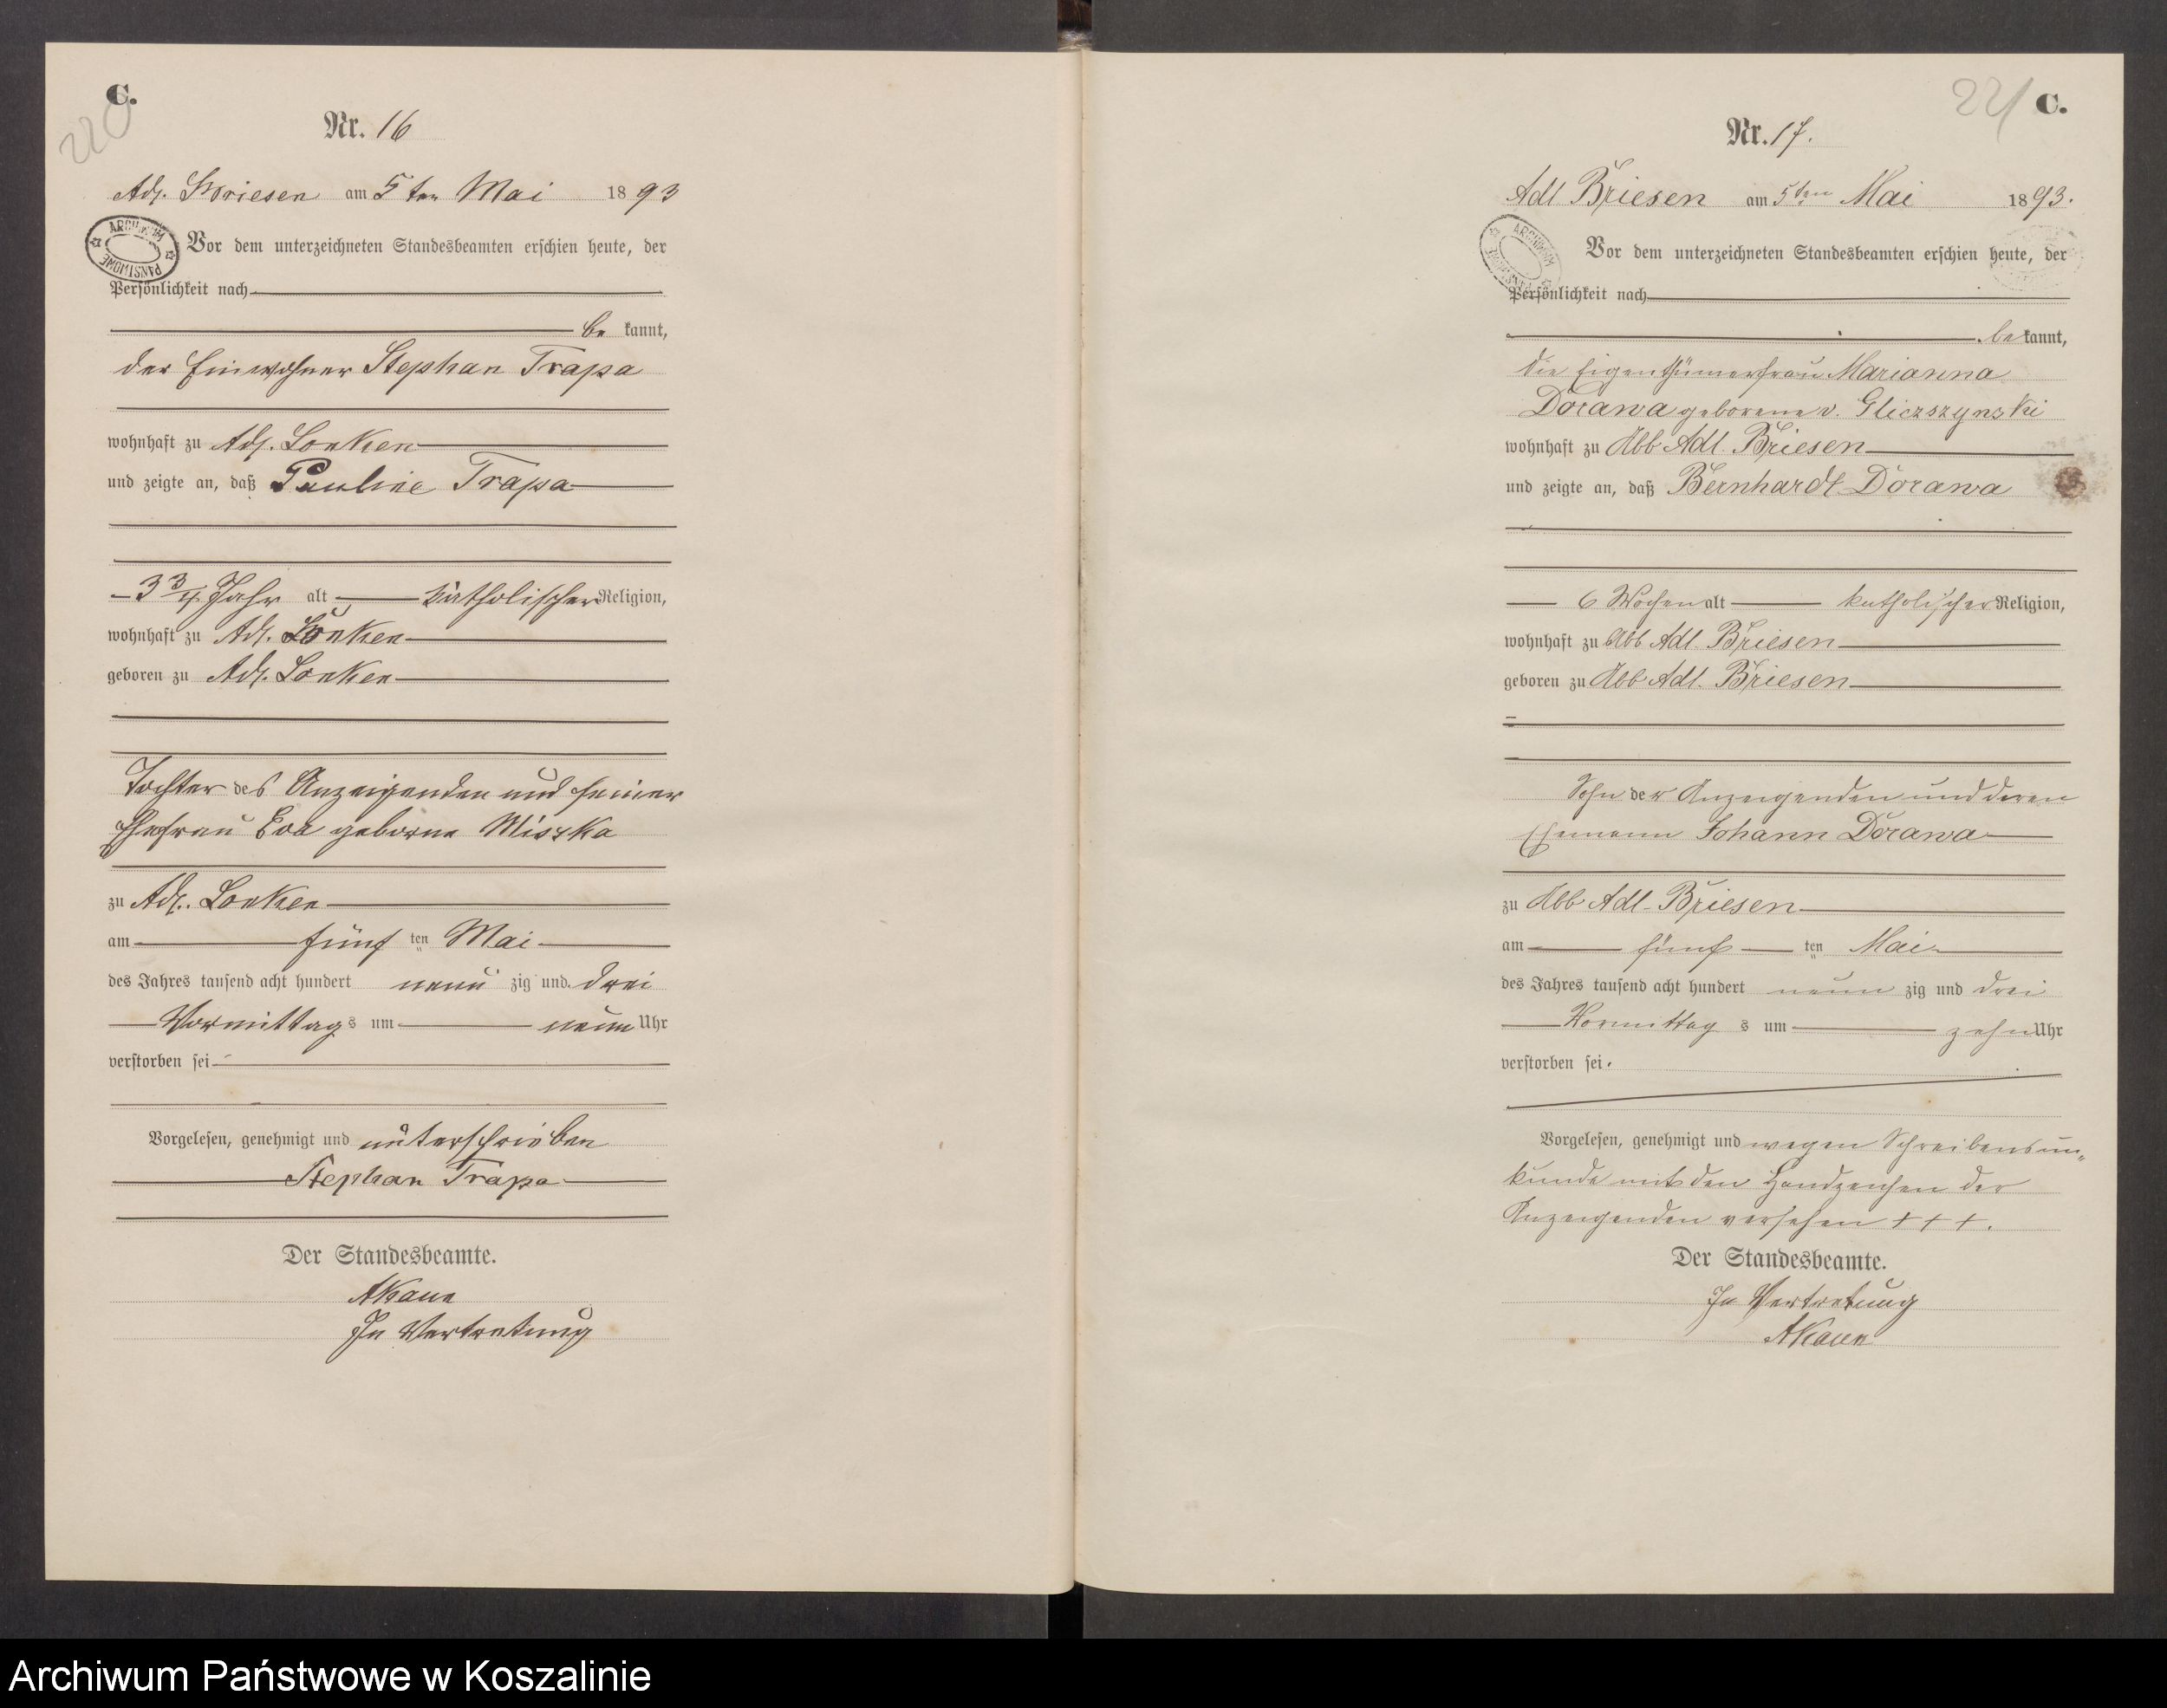 C.
220
Nr. 16
Adl. Briesen am 5ten Mai 1893
ARCHIWUM PAŃSTWOWE
Vor dem unterzeichneten Standesbeamten erschien heute, der
Persönlichkeit nach
be kannt,
der Einwohner Stephan Trapa
wohnhaft zu Adl. Lonken
und zeigte an, daß Pauline Trapa
3 3/4 Jahr alt katholischer Religion,
wohnhaft zu Adl. Lonken
geboren zu Adl. Lonken
Tochter des Anzeigenden und seiner
Ehefrau Eva geborne Miszka
zu Adl. Lonken
am fünf ten Mai
des Jahres tausend acht hundert neun zig und drei
Vormittags um neun Uhr
verstorben sei
Vorgelesen, genehmigt und unterschrieben
Stephan Trapa
Der Standesbeamte.
AKaun
In Vertretung
221 C.
Nr. 17.
Adl Briesen am 5ten Mai 1893.
ARCHIWUM
Vor dem unterzeichneten Standesbeamten erschien heute, der
Persönlichkeit nach
be kannt,
die Eigenthümerfrau Marianna
Dorawa geborene v. Gliczszynski
wohnhaft zu Abb Adl. Briesen
und zeigte an, daß Bernhardt Dorawa
6 Wochen alt katholischer Religion,
wohnhaft zu Abb Adl. Briesen
geboren zu Abb Adl. Briesen
Sohn der Anzeigenden und deren
Ehemann Johann Dorawa
zu Abb Adl. Briesen
am fünf ten Mai
des Jahres tausend acht hundert neun zig und drei
Vormittag s um zehn Uhr
verstorben sei.
Vorgelesen, genehmigt und wegen Schreibensun„
kunde mit den Handzeichen der
Anzeigenden versehen + + +.
Der Standesbeamte.
In Vertretung
AKaun
Archiwum Państwowe w Koszalinie